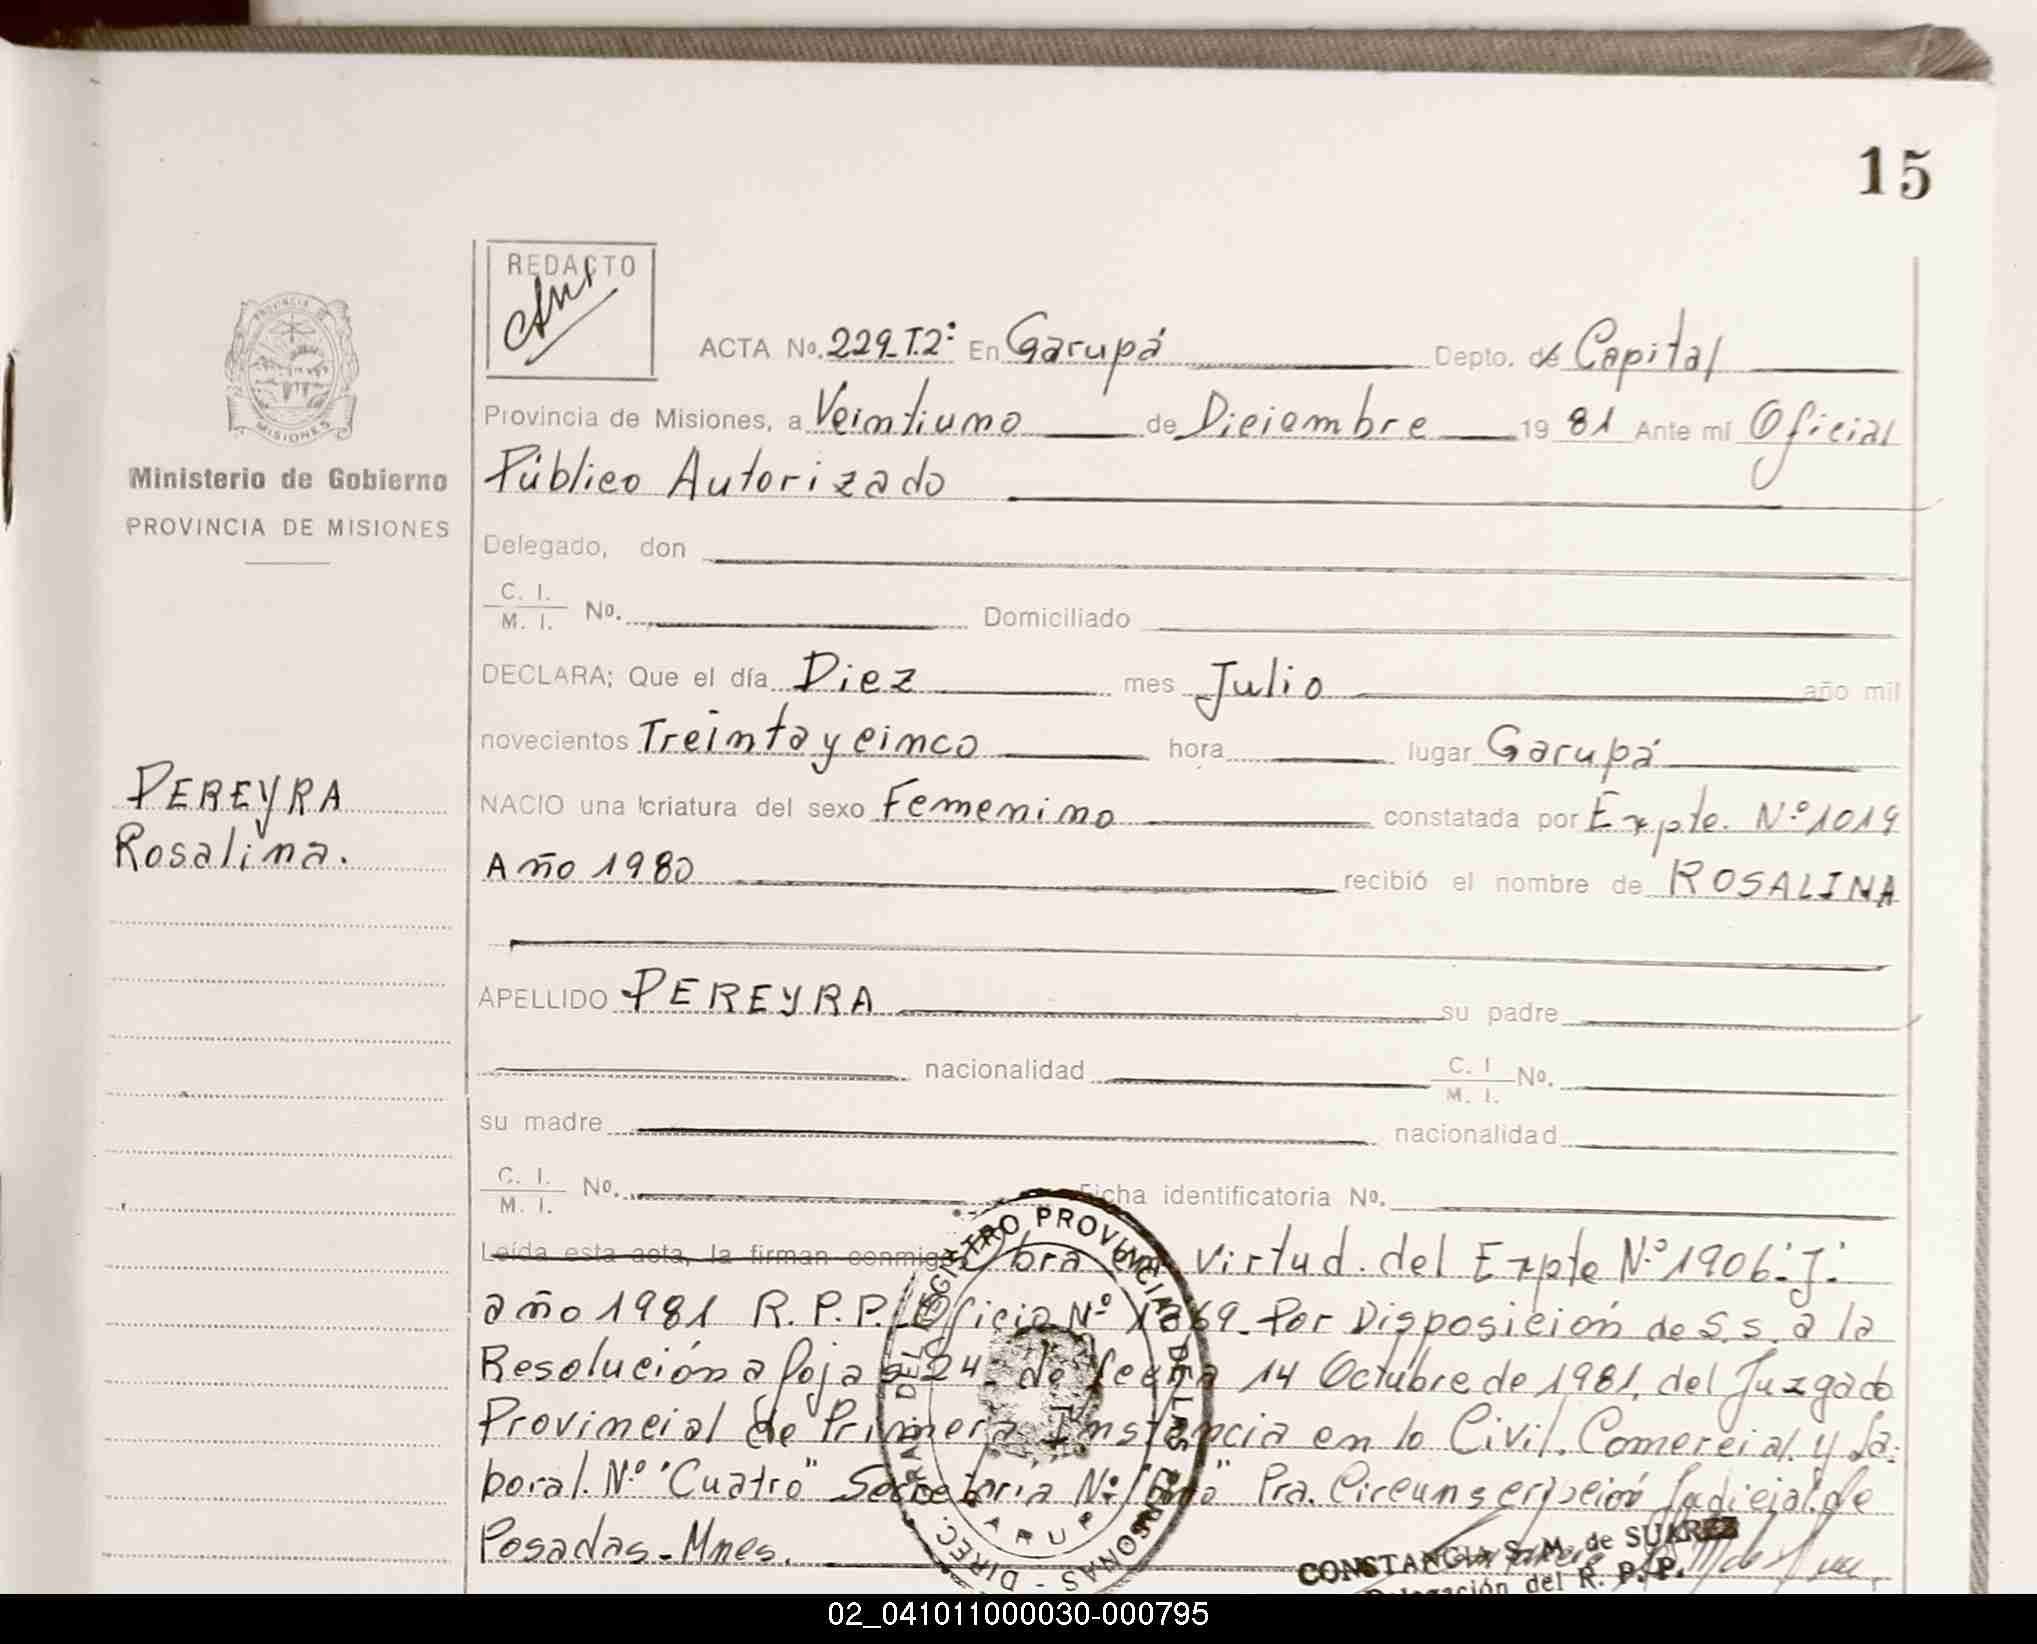 15
REDACTO
ACTA No. 229-T.2: En Garupá Depto. de Capital
PROVINCIA DE
MISIONES
Provincia de Misiones, a Veintiuno de Diciembre 19 81 Ante mí Oficial
Ministerio de Gobierno
Público Autorizado
PROVINCIA DE MISIONES
Delegado, don
C. I.
M. I. No. Domiciliado
DECLARA; Que el día Diez mes Julio año mil
novecientos Treinta y cinco hora lugar Garupá
PEREYRA
NACIO una criatura del sexo Femenino constatada por Expte. Nº 1019
Rosalina.
Año 1980 recibió el nombre de ROSALINA
APELLIDO PEREYRA su padre
nacionalidad C. I
M. I. No.
su madre nacionalidad
C. I.
M. I. No. Ficha identificatoria No.
Leída esta acta, la firman conmigo Obra en virtud. del Expte Nº 1906.J.
año 1981 R.P.P. Oficio Nº 69. Por Disposición de S.S. a la
Resolución a fojas 24. de fecha 14 Octubre de 1981, del Juzgado
Provincial de Primera Instancia en lo Civil. Comercial. y La:
boral. Nº "Cuatro" Secretaría Nº Pra. Circunscripción Judicial. de
Posadas - Mnes.
DIREC. GRAL. DEL REGISTRO PROVINCIAL DE LAS PERSONAS
GARUPA
CONSTANCIA S. M. de SUAREZ
Delegación del R. P. P.
02_041011000030-000795